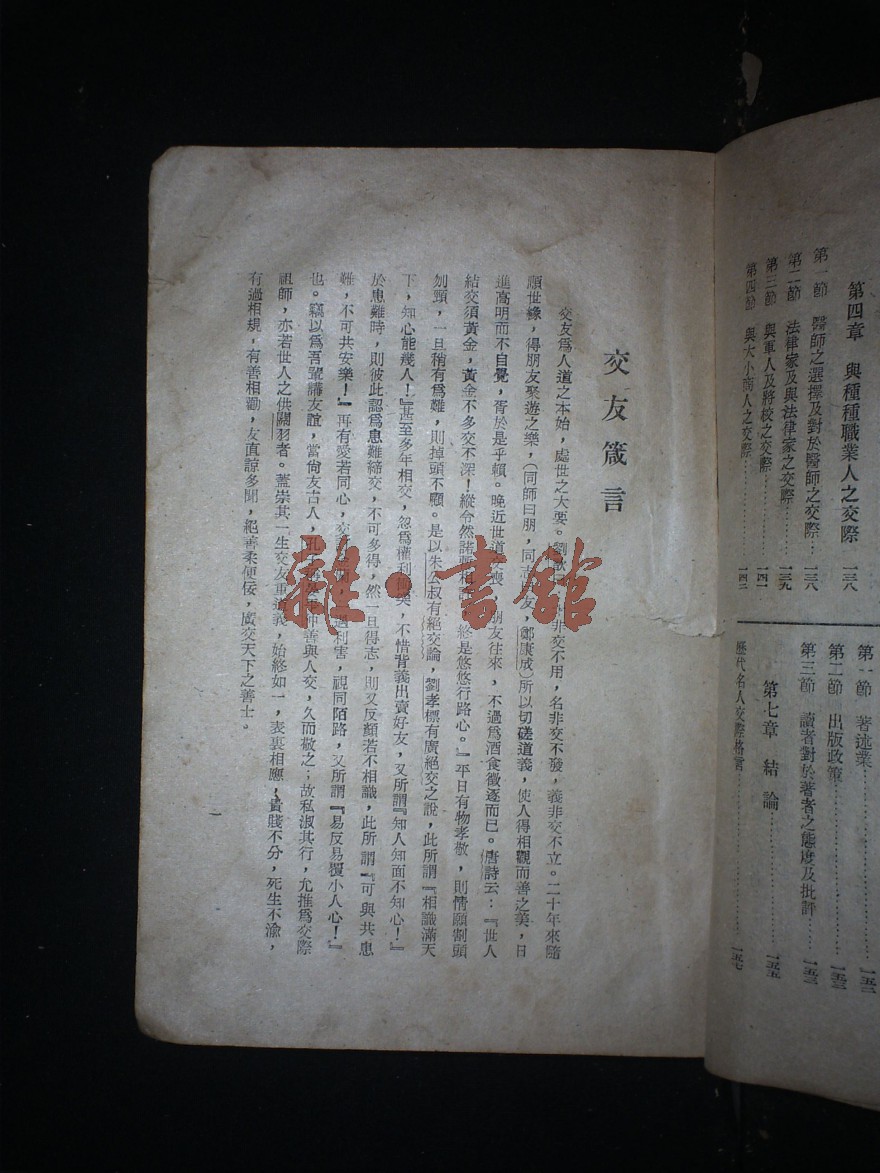 第四章　與種種職業人之交際　一三八
第一節　醫師之選擇及對於醫師之交際……一三八
第二節　法律家及與法律家之交際……一三九
第三節　與軍人及將校之交際……一四一
第四節　與大小商人之交際……一四二
第一節　著述業……一五二
第二節　出版政策……一五三
第三節　讀者對於著者之態度及批評……一五三
第七章　結論……一五五
歷代名人交際格言……一五七
交友箴言
交友爲人道之本始，處世之大要。劉 非交不用，名非交不發，義非交不立。二十年來隨
順世緣，得朋友聚遊之樂，（同師曰朋，同志 友，鄭康成）所以切磋道義，使人得相觀而善之美，日
進高明而不自覺，胥於是乎賴。晚近世道 喪，朋友往來，不過爲酒食徵逐而已。唐詩云：『世人
結交須黃金，黃金不多交不深！縱令然諾暫相 ，終是悠悠行路心。』平日有物孝敬，則情願割頭
刎頸，一旦稍有爲難，則掉頭不顧。是以朱公叔有絕交論，劉孝標有廣絕交之說，此所謂『相識滿天
下，知心能幾人！』甚至多年相交，忽爲權利 ，不惜背義出賣好友，又所謂『知人知面不知心！』
於患難時，則彼此認爲患難締交，不可多得，然一旦得志，則又反顏若不相識，此所謂『可與共患
難，不可共安樂！』再有愛若同心，交 遇利害，視同陌路，又所謂『易反易覆小人心！』
也。竊以爲吾輩講友誼，當尙友古人，孔 仲善與人交，久而敬之；故私淑其行，尤推爲交際
祖師，亦若世人之供關羽者。蓋崇其一生交友重道義，始終如一，表裏相應，貴賤不分，死生不渝，
有過相規，有善相勸，友直諒多聞，絕善柔便佞，廣交天下之善士。
一
雜·書館